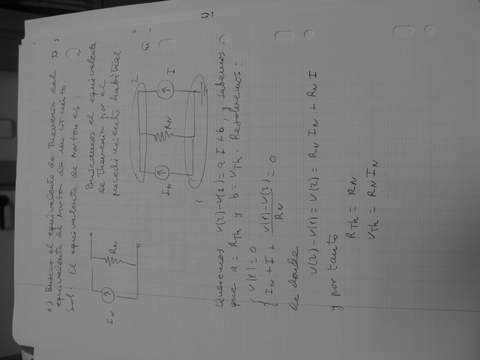 e) Buscar el equivalente de Thevenin del
equivalente de Norton de un circuito.
Sol: El equivalente de Norton es:
I_N
R_N
Buscamos el equivalente
de Thevenin por el
procedimiento habitual
2
I_N
R_N
I
1
Queremos V(2)-V(1) = a I + b, sabemos
que a = R_Th y b = V_Th. Resolvemos:
{ V(1) = 0
{ I_N + I + (V(1)-V(2))/R_N = 0
de donde
V(2)-V(1) = V(2) = R_N I_N + R_N I
y por tanto
R_Th = R_N
V_Th = R_N I_N